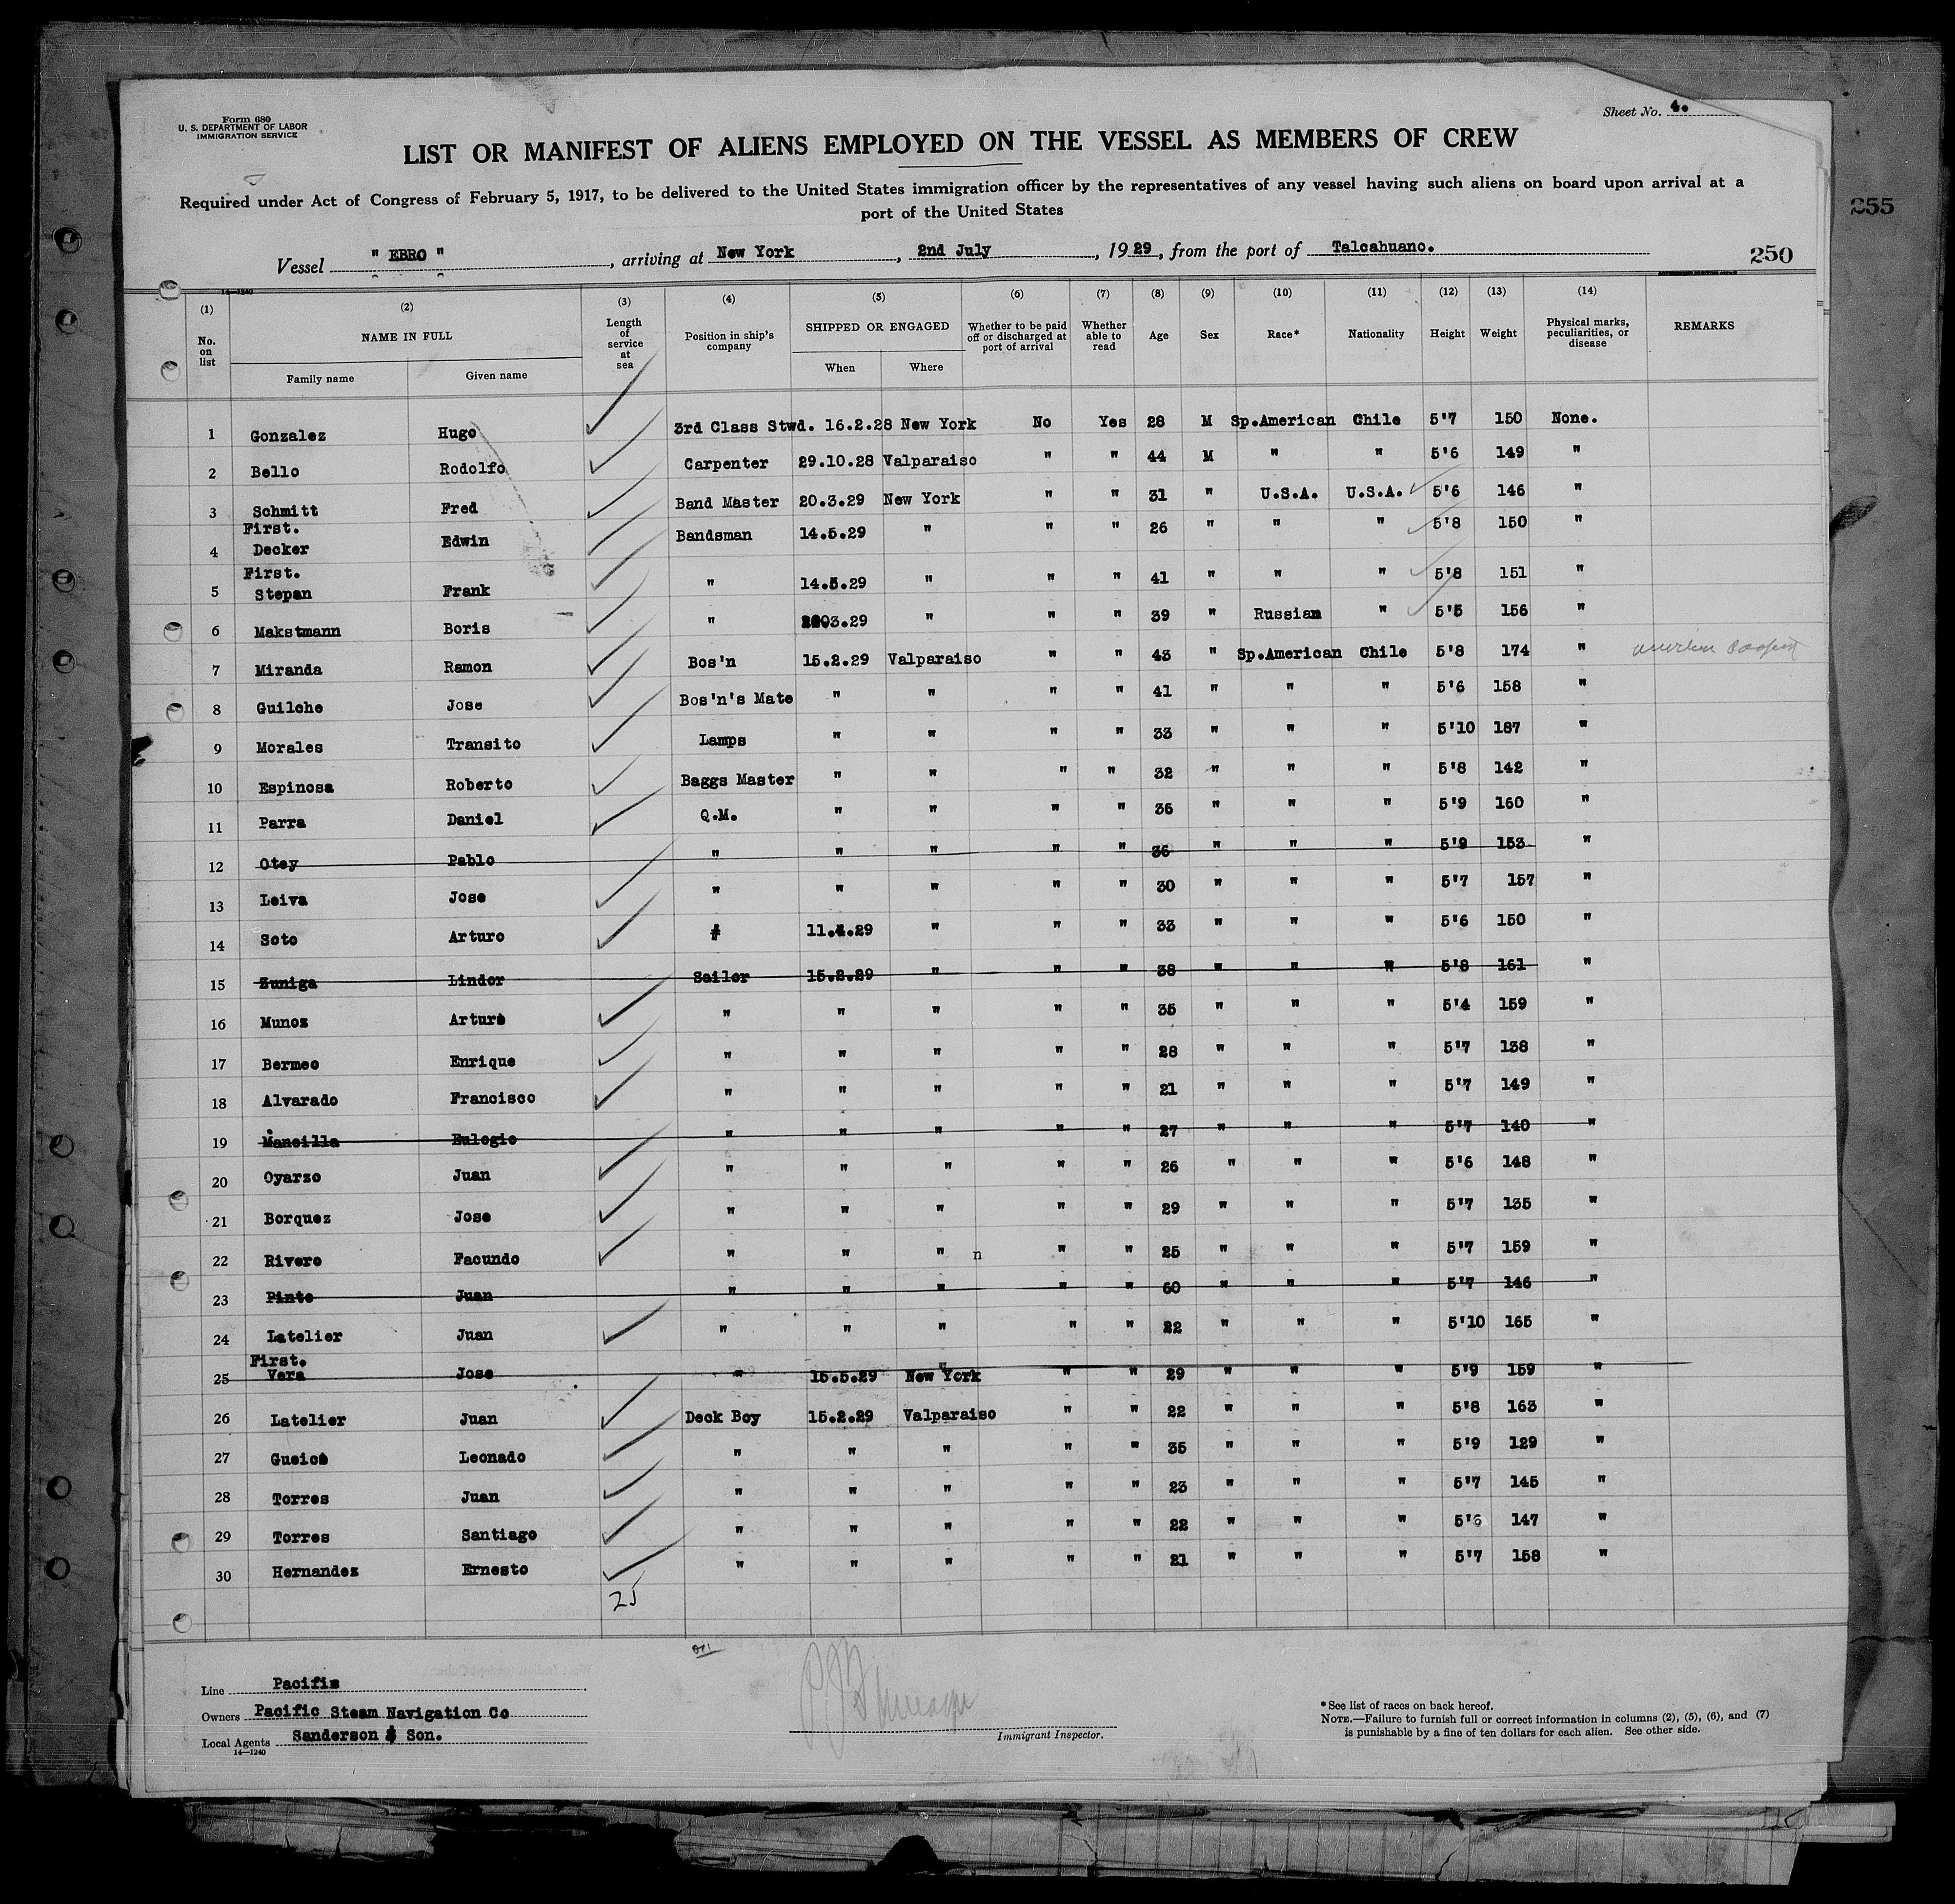 Form 680
U. S. DEPARTMENT OF LABOR
IMMIGRATION SERVICE
Sheet No. 4.
LIST OR MANIFEST OF ALIENS EMPLOYED ON THE VESSEL AS MEMBERS OF CREW
Required under Act of Congress of February 5, 1917, to be delivered to the United States immigration officer by the representatives of any vessel having such aliens on board upon arrival at a
port of the United States
255
Vessel " EBRO ", arriving at New York, 2nd July, 1929, from the port of Talcahuano.
250
14—1240
(1) (2) (3) (4) (5) (6) (7) (8) (9) (10) (11) (12) (13) (14)
No. on list NAME IN FULL Length of service at sea Position in ship's company SHIPPED OR ENGAGED Whether to be paid off or discharged at port of arrival Whether able to read Age Sex Race* Nationality Height Weight Physical marks, peculiarities, or disease REMARKS
Family name Given name When Where
1 Gonzalez Hugo 3rd Class Stwd. 16.2.28 New York No Yes 28 M Sp.American Chile 5'7 150 None.
2 Bello Rodolfo Carpenter 29.10.28 Valparaiso " " 44 M " " 5'6 149 "
3 Schmitt Fred Band Master 20.3.29 New York " " 31 " U.S.A. U.S.A. 5'6 146 "
First.
4 Decker Edwin Bandsman 14.5.29 " " " 26 " " " 5'8 150 "
First.
5 Stepan Frank " 14.5.29 " " " 41 " " " 5'8 151 "
6 Makstmann Boris " 03.29 " " " 39 " Russian " 5'5 156 "
7 Miranda Ramon Bos'n 15.2.29 Valparaiso " " 43 " Sp.American Chile 5'8 174 "
8 Guilche Jose Bos'n's Mate " " " " 41 " " " 5'6 158 "
9 Morales Transito Lamps " " " " 33 " " " 5'10 187 "
10 Espinosa Roberto Baggs Master " " " " 32 " " " 5'8 142 "
11 Parra Daniel Q.M. " " " " 36 " " " 5'9 160 "
12 Otey Pablo " " " " " 36 " " " 5'9 153 "
13 Leiva Jose " " " " " 30 " " " 5'7 157 "
14 Soto Arturo " 11.4.29 " " " 33 " " " 5'6 150 "
15 Zuniga Lindor Sailor 15.2.29 " " " 38 " " " 5'8 161 "
16 Munoz Arturo " " " " " 35 " " " 5'4 159 "
17 Bermeo Enrique " " " " " 28 " " " 5'7 138 "
18 Alvarado Francisco " " " " " 21 " " " 5'7 149 "
19 Mancilla Eulogio " " " " " 27 " " " 5'7 140 "
20 Oyarzo Juan " " " " " 26 " " " 5'6 148 "
21 Borquez Jose " " " " " 29 " " " 5'7 135 "
22 Rivero Facundo " " " n " " 25 " " " 5'7 159 "
23 Pinto Juan " " " " " 60 " " " 5'7 146 "
24 Latelier Juan " " " " " 22 " " " 5'10 165 "
First.
25 Vera Jose " 15.5.29 New York " " 29 " " " 5'9 159 "
26 Latelier Juan Deck Boy 15.2.29 Valparaiso " " 22 " " " 5'8 163 "
27 Gueico Leonado " " " " " 35 " " " 5'9 129 "
28 Torres Juan " " " " " 23 " " " 5'7 145 "
29 Torres Santiago " " " " " 22 " " " 5'6 147 "
30 Hernandez Ernesto " " " " " 21 " " " 5'7 158 "
25
Line Pacific
Owners Pacific Steam Navigation Co
Local Agents Sanderson & Son.
14—1240
Immigrant Inspector.
*See list of races on back hereof.
NOTE.—Failure to furnish full or correct information in columns (2), (5), (6), and (7)
is punishable by a fine of ten dollars for each alien. See other side.